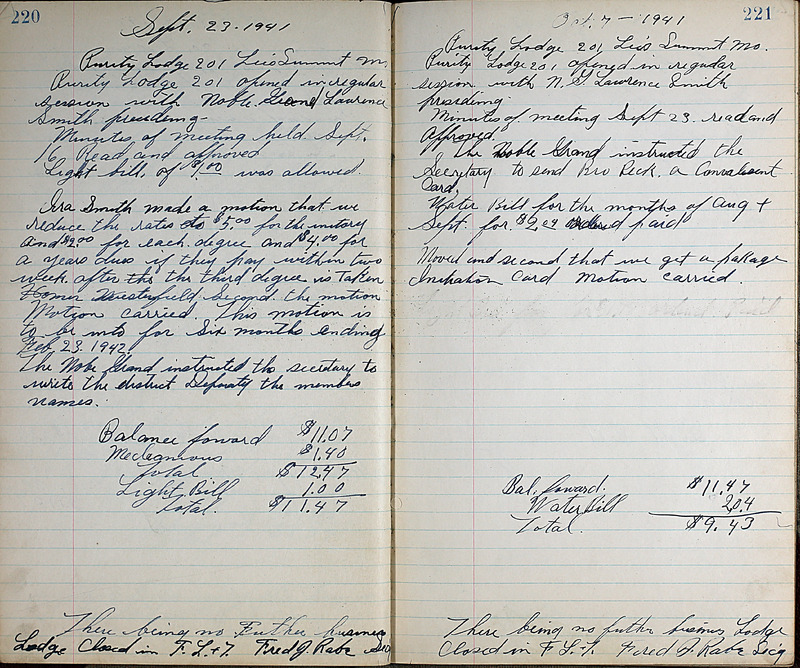 220
Sept. 23. 1941
Purity Lodge 201 Lee's Summit Mo.
Purity Lodge 201 opened in regular
session with Noble Grand Lawrence
Smith presiding-
Minutes of meeting held Sept.
16 Read and approved
Light bill of $1.00 was allowed.
Ira Smith made a motion that we
reduce the rates to $5.00 for the
and $2.00 for each degree and $4.00 for
a years dues if they pay within two
week after the the third degree is taken
Homer Westerfield second the motion
Motion carried. This motion is
to be into for Six months ending
Feb 23. 1942.
The Noble Grand instructed the secretary to
write the district Deputy the members
names.
Balance foward $11.07
$1.40
Total $12.47
Light Bill 1.00
Total. $11.47
There being no Futher business
Lodge Closed in F. L. + T. Fred J Rabe Sec
221
Oct. 7 - 1941
Purity Lodge 201 Lee's Summit Mo.
Purity Lodge 201 opened in regular
session with N. G Lawrence Smith
presiding
Minutes of meeting Sept 23. read and
Approved
The Noble Grand instructed the
Secretary to send Bro Peck. a Convalesent
Card.
Water Bill for the months of Aug +
Sept. for $2.04 paid
Moved and second that we get a pakage
Card Motion carried.
Bal. foward. $11.47
Water Bill 2.04
Total. $9.43
There being no futher Lodge
Closed in F. L. + T. Fred J. Rabe Secy